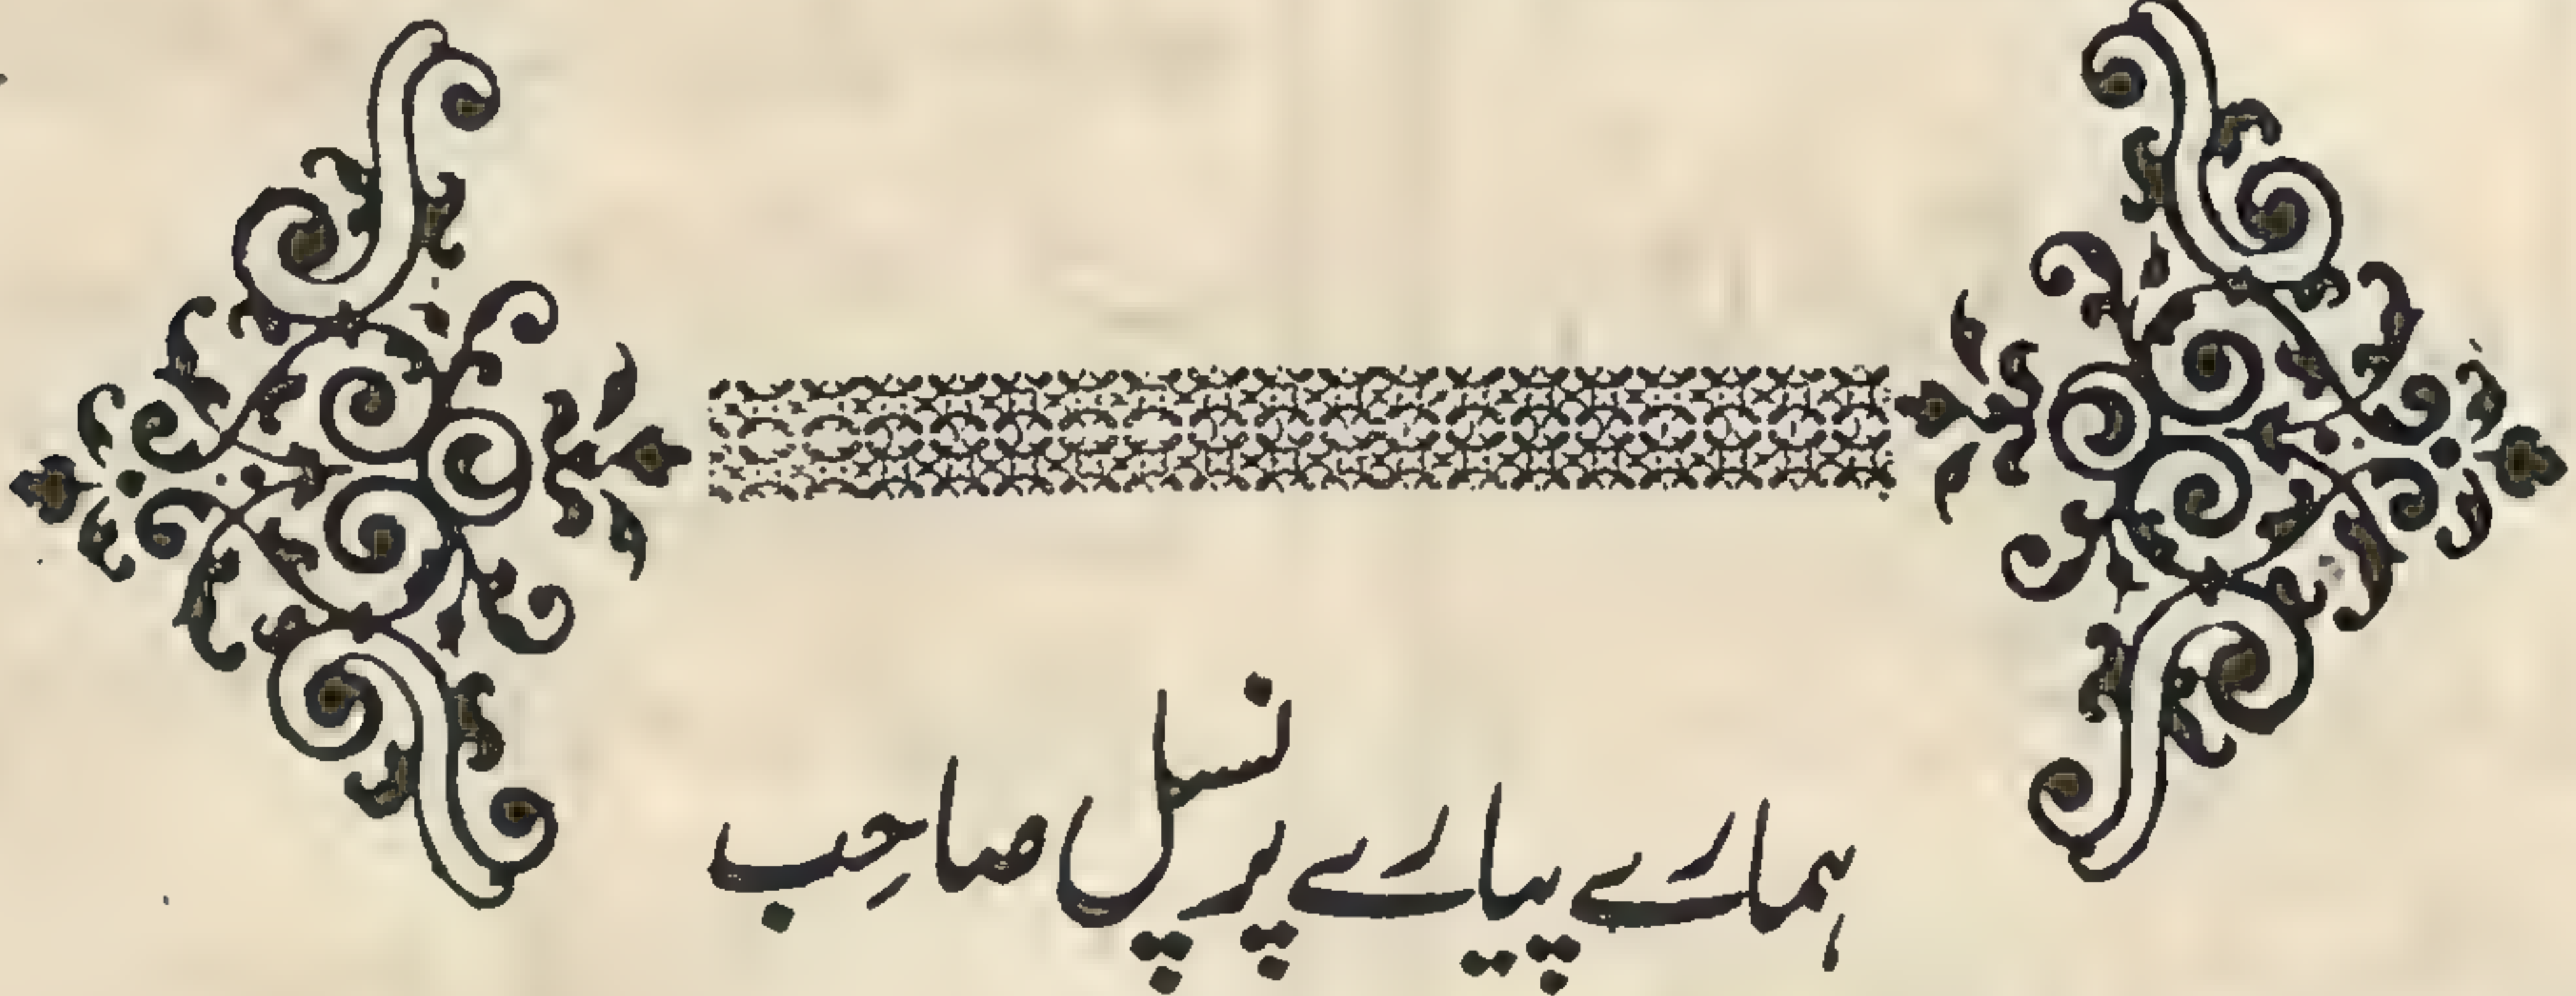 ہمارے پیارے پرنسپل صاحِب